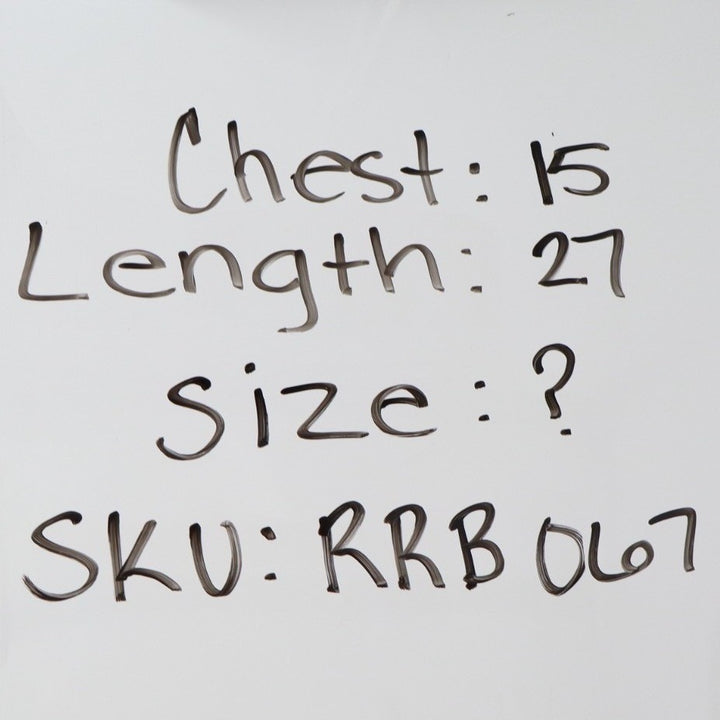 Chest: 15
Length: 27
Size: ?
SKU: RRB 067